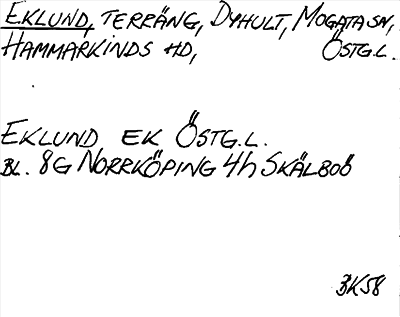 EKLUND, TERRÄNG, DYHULT, MOGATA SN,
HAMMARKINDS HD, ÖSTG.L.
EKLUND EK ÖSTG.L.
BL. 8G NORRKÖPING 4h SKÄLBOÖ
BK58